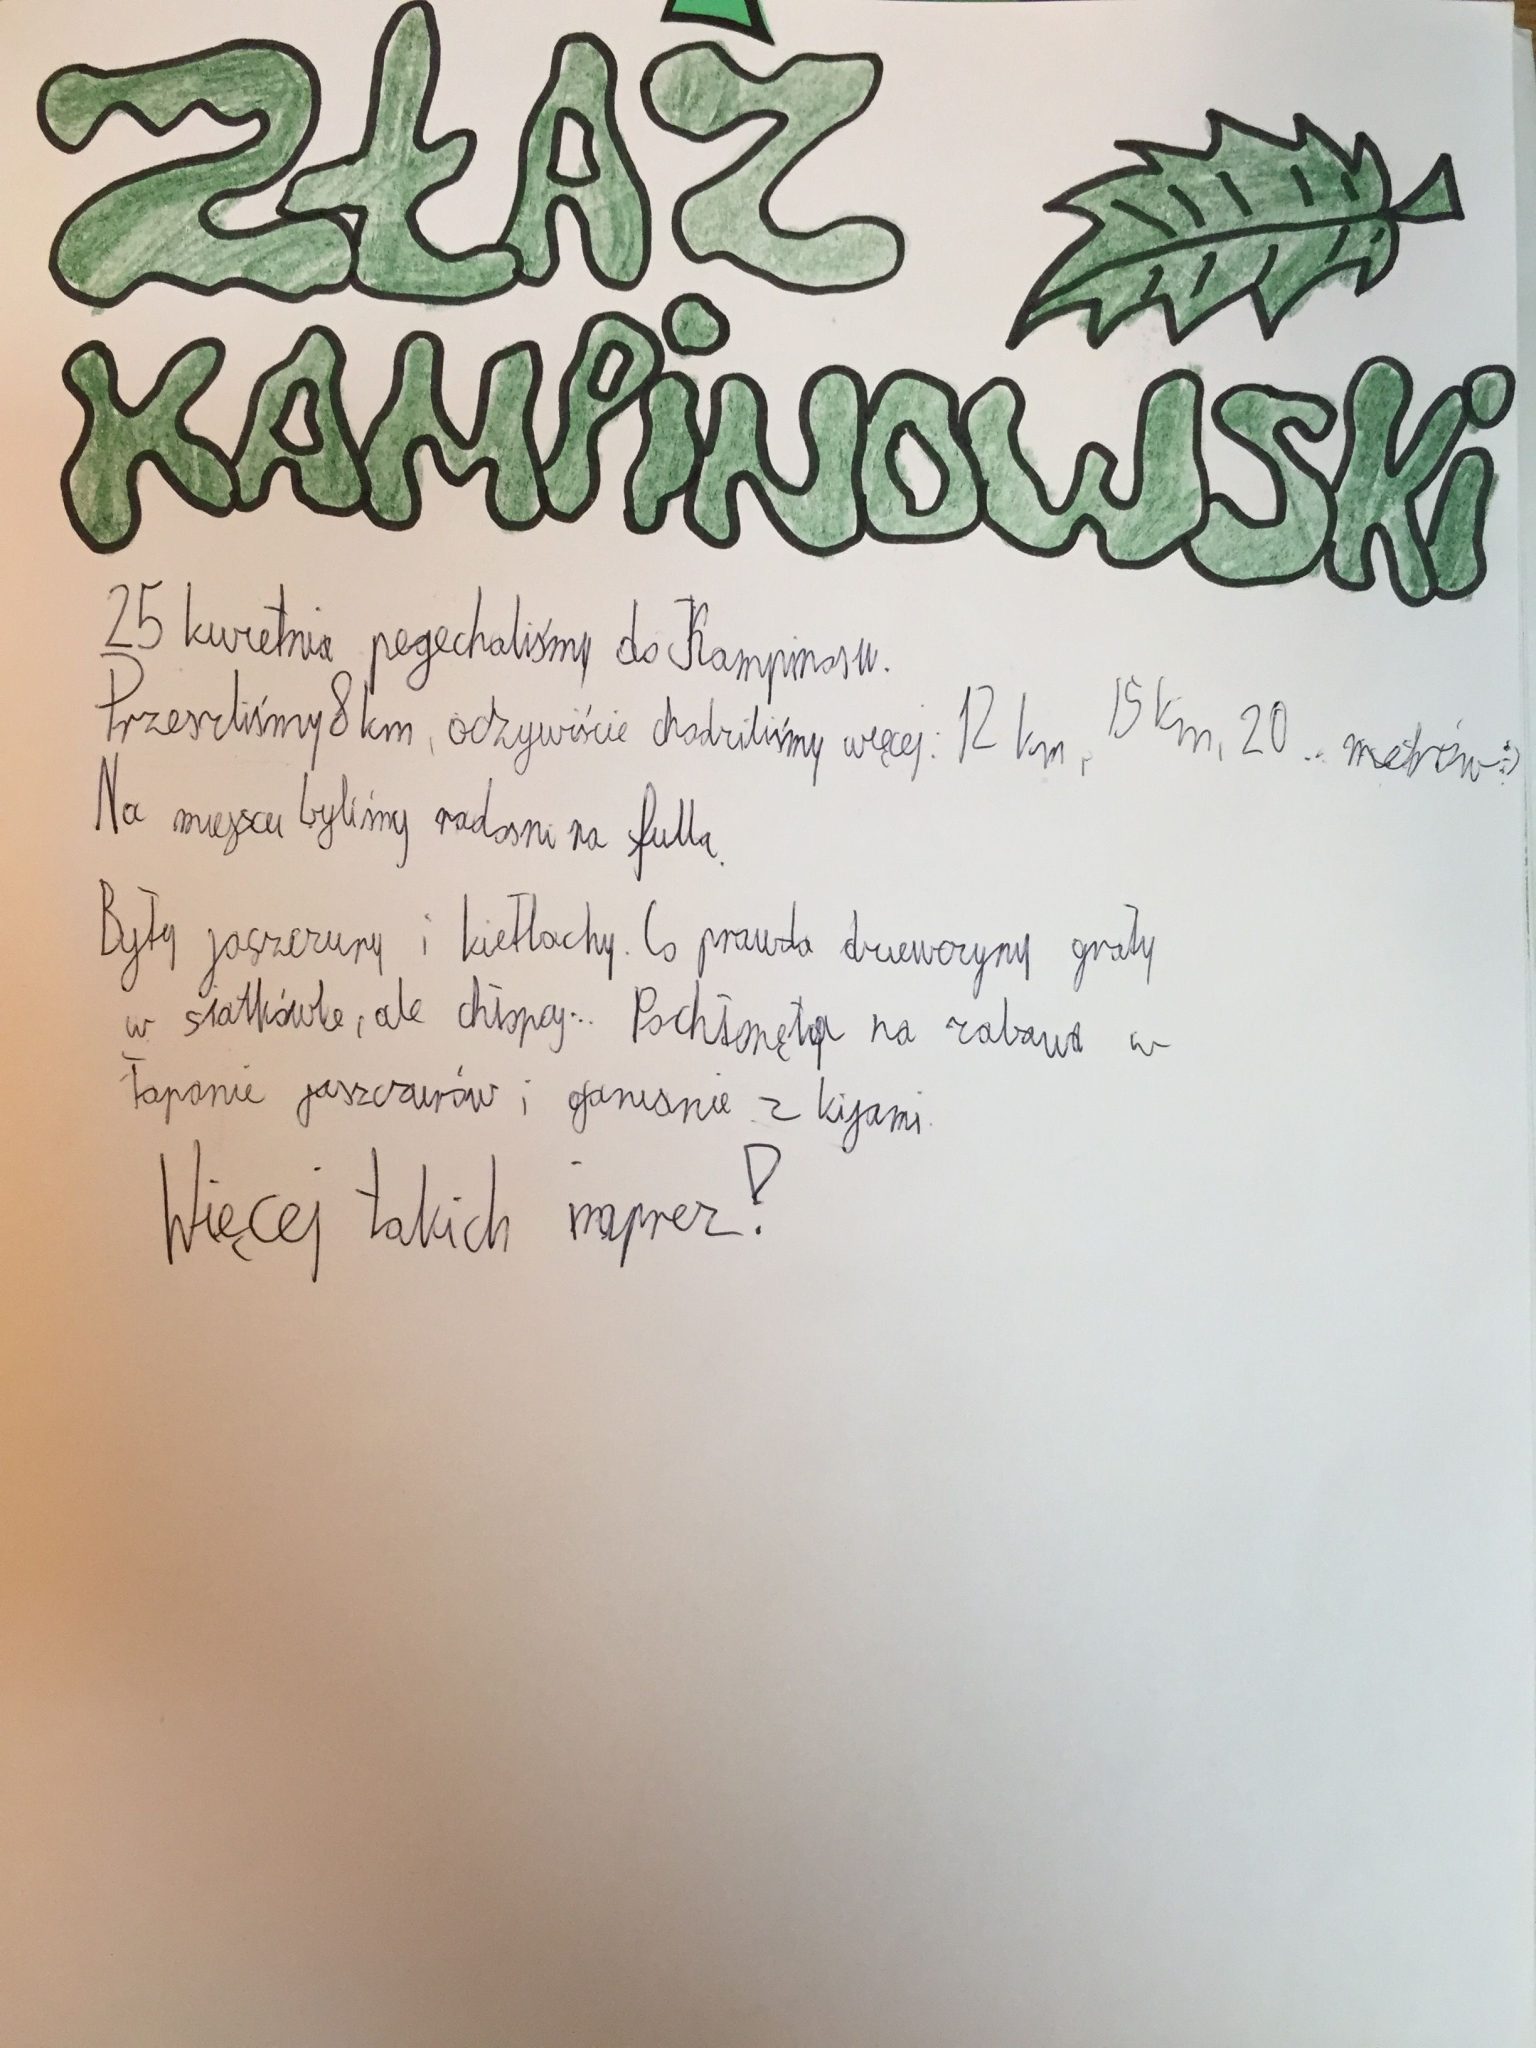 ZŁAZ
KAMPiNOWSKi
25 kwietnia pojechaliśmy do Kampinosu.
Przeszliśmy 8 km, oczywiście chodziliśmy więcej: 12 km, 15 km, 20 ... metrów :)
Na miejscu byliśmy radośni na fulla.
Były jaszczury i kiełbachy. Co prawda dziewczyny grały
w siatkówkę, ale chłopcy... Pochłonęła na zabawa w
łapanie jaszczurów i ganianie z kijami.
Więcej takich imprez!